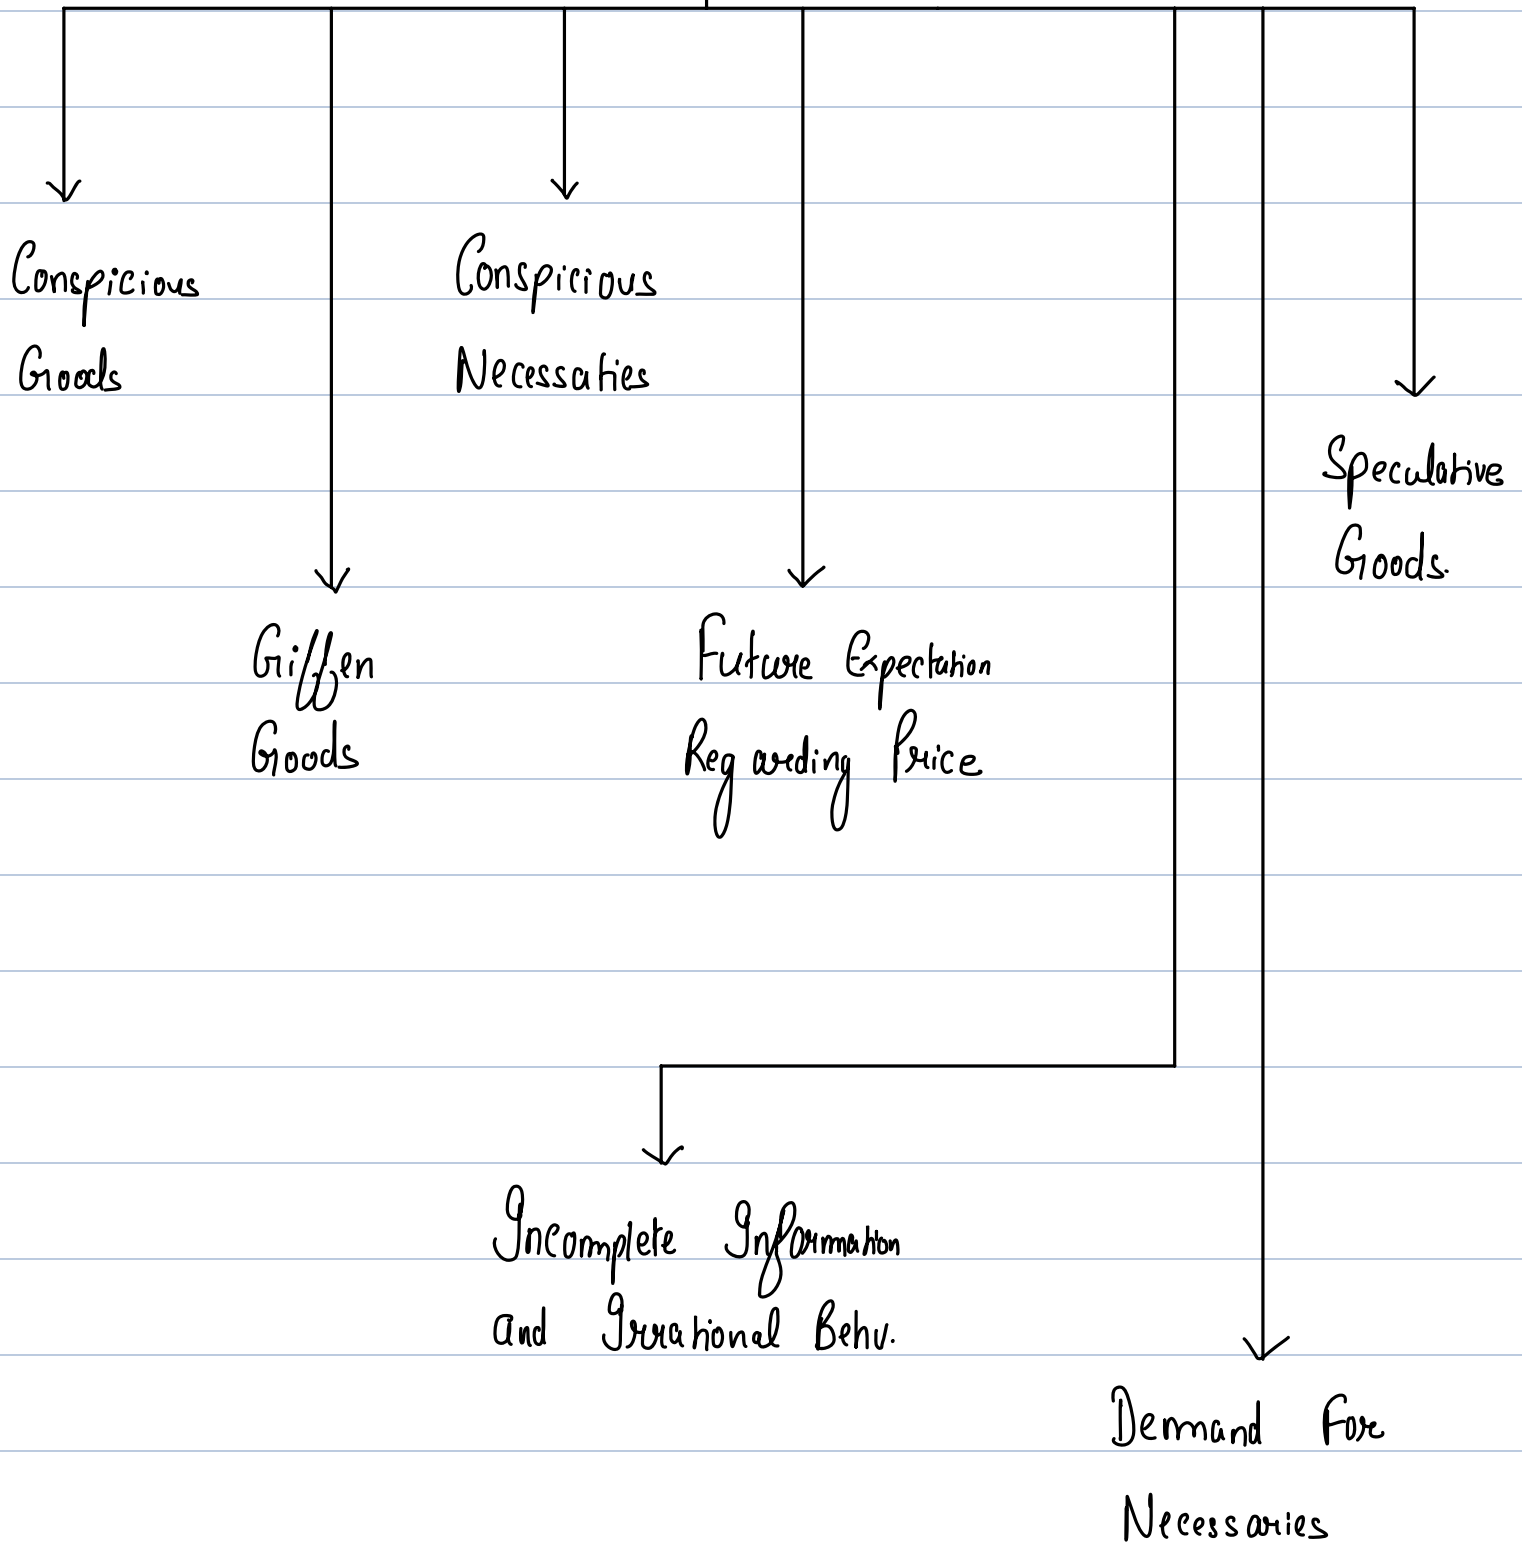 Conspicious
Goods
Conspicious
Necessaties
Speculative
Goods.
Giffen
Goods
Future Expectation
Regarding Price
Incomplete Information
and Irrational Behv.
Demand For
Necessaries